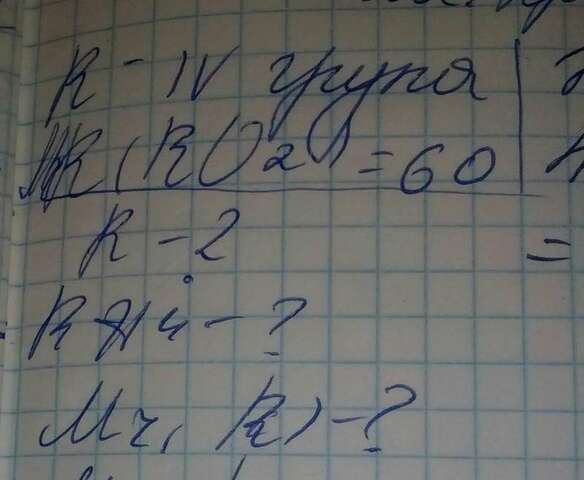 R - IV група
Mr(RO2) = 60
R - 2
=
R H4 - ?
Mr(R) - ?